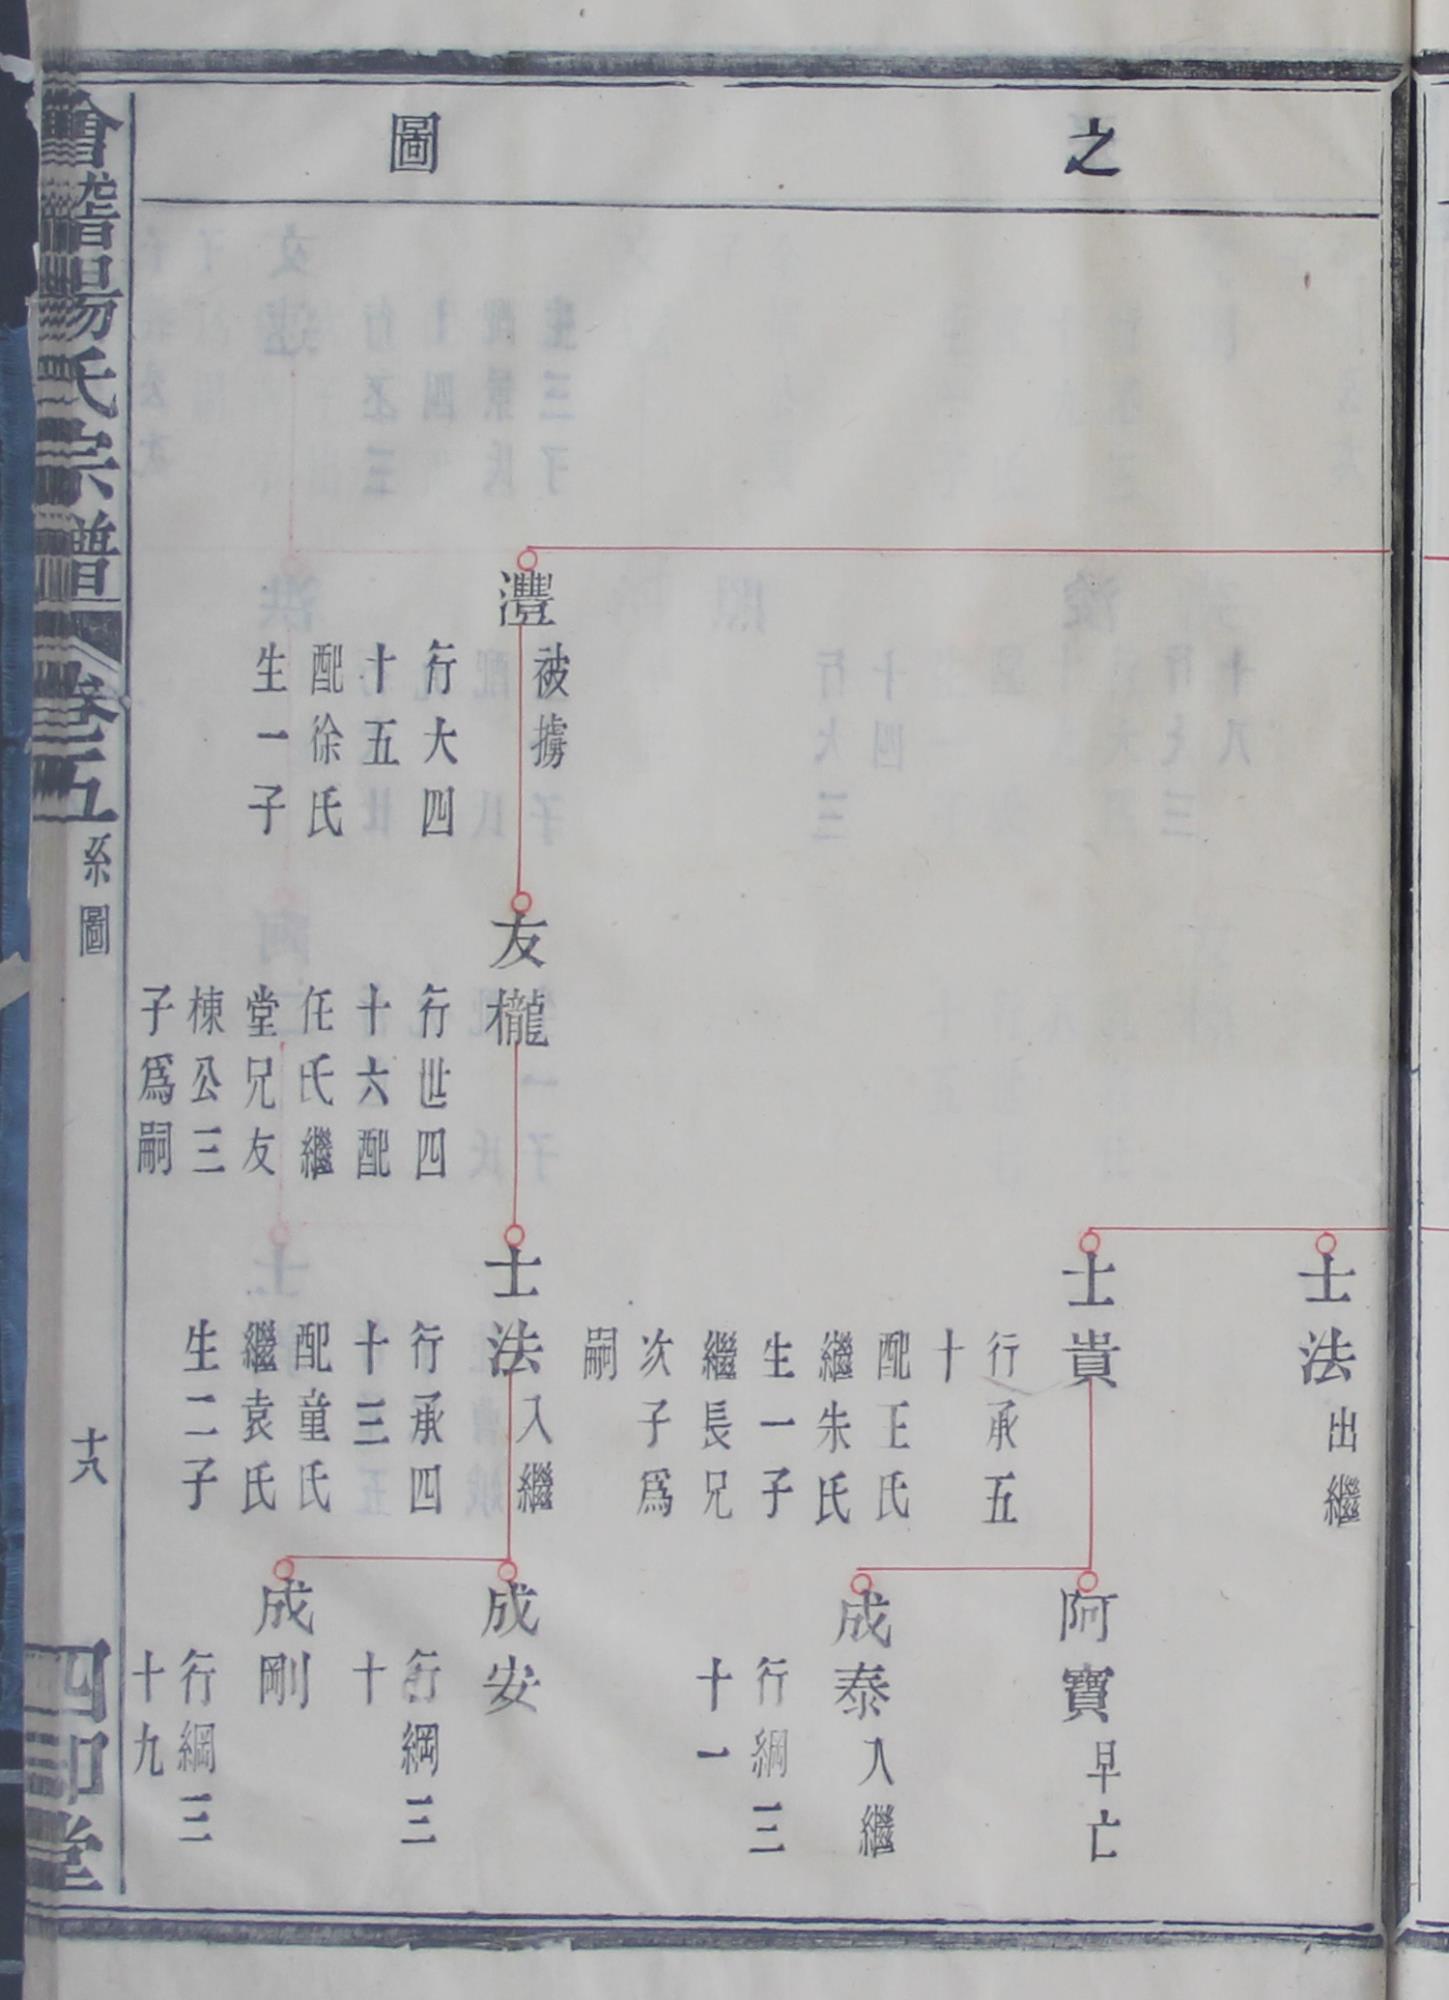 之
圖
灃
被擄
行大四
十五
配徐氏
生一子
友櫳
行世四
十六配
任氏繼
堂兄友
棟公三
子爲嗣
士法
出繼
士貴
行承五
十
配王氏
繼朱氏
生一子
繼長兄
次子爲
嗣
士法
入繼
行承四
十三
配童氏
繼袁氏
生二子
阿寶
早亡
成泰
入繼
行綱三
十一
成安
行綱三
十
成剛
行綱三
十九
會稽楊氏宗譜
卷五
系圖
十八
四印堂